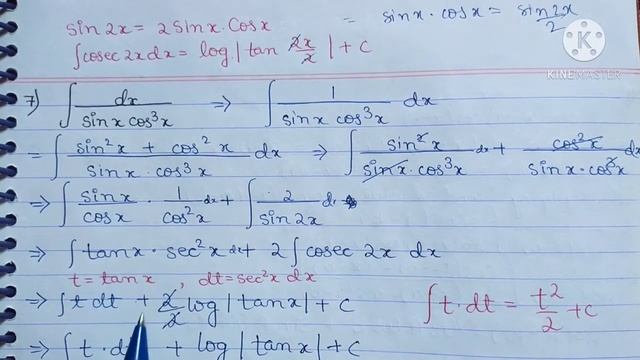 sin 2x = 2 sinx . Cosx = sinx . cosx = sin2x/2
∫cosec 2x dx = log|tan 2x/2| + c
KINEMASTER
7) ∫ dx/(sinx cos³x) ⇒ ∫ 1/(sinx cos³x) dx
= ∫ (sin²x + cos²x)/(sinx . cos³x) dx ⇒ ∫ sin²x/(sinx . cos³x) dx + cos²x/(sinx . cos³x) dx
⇒ ∫ sinx/cosx . 1/cos²x dx + ∫ 2/sin2x dx
⇒ ∫ tanx . sec²x dx + 2∫ cosec 2x dx
t = tanx , dt = sec²x dx
⇒ ∫t dt + 2/2 log|tanx| + c ∫t . dt = t²/2 + c
⇒ ∫t . d + log|tanx| + c